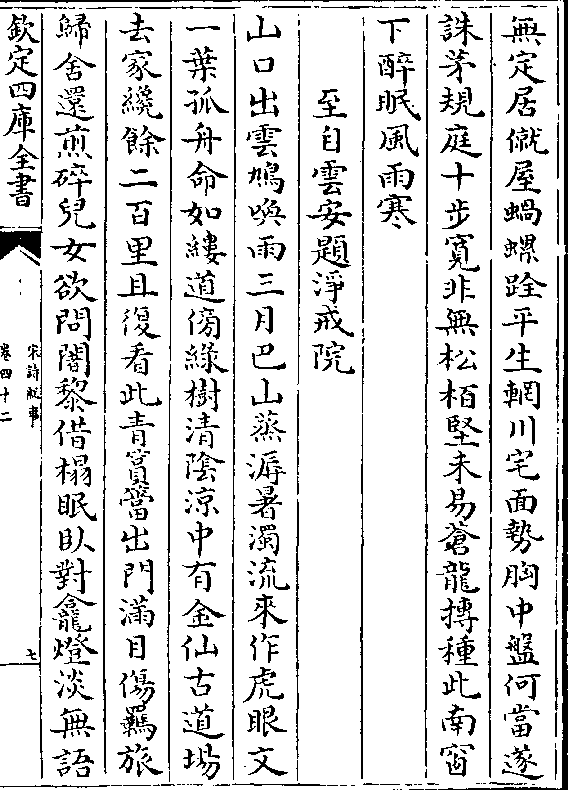 無定居僦屋蝸螺跧平生輞川宅面勢胸中盤何當遂
誅茅規庭十步寛非無松栢堅未易蒼龍摶種此南窗
下醉眠風雨寒
至自雲安題淨戒院
山口出雲鳩喚雨三月巴山蒸溽暑濁流來作虎眼文
一葉孤舟命如縷道傍緑樹清陰凉中有金仙古道場
去家纔餘二百里且復看此青篔簹出門滿目傷羈旅
歸舎還煎碎兒女欲問闍黎借榻眠臥對龕燈淡無語
欽定四庫全書
宋詩紀事
卷四十二
七